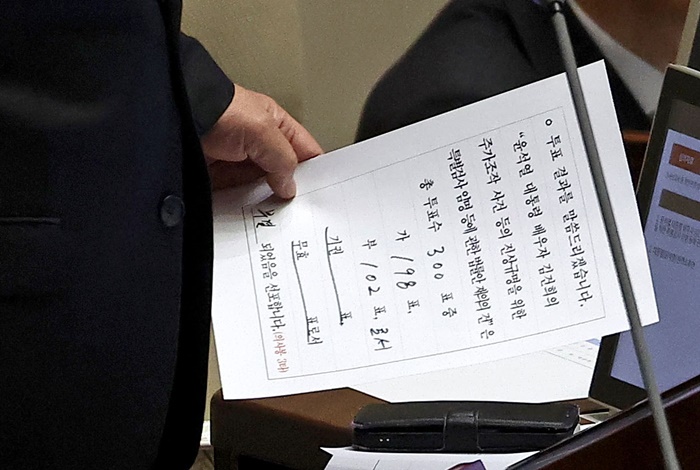 ○ 투표 결과를 말씀드리겠습니다.
"윤석열 대통령 배우자 김건희의
주가조작 사건 등의 진상규명을 위한
특별검사 임명 등에 관한 법률안 재의의 건"은
총 투표수 300 표 중
가 198 표,
부 102 표, 로써
기권 표,
무효 표로서
부결 되었음을 선포합니다. (의사봉 3타)